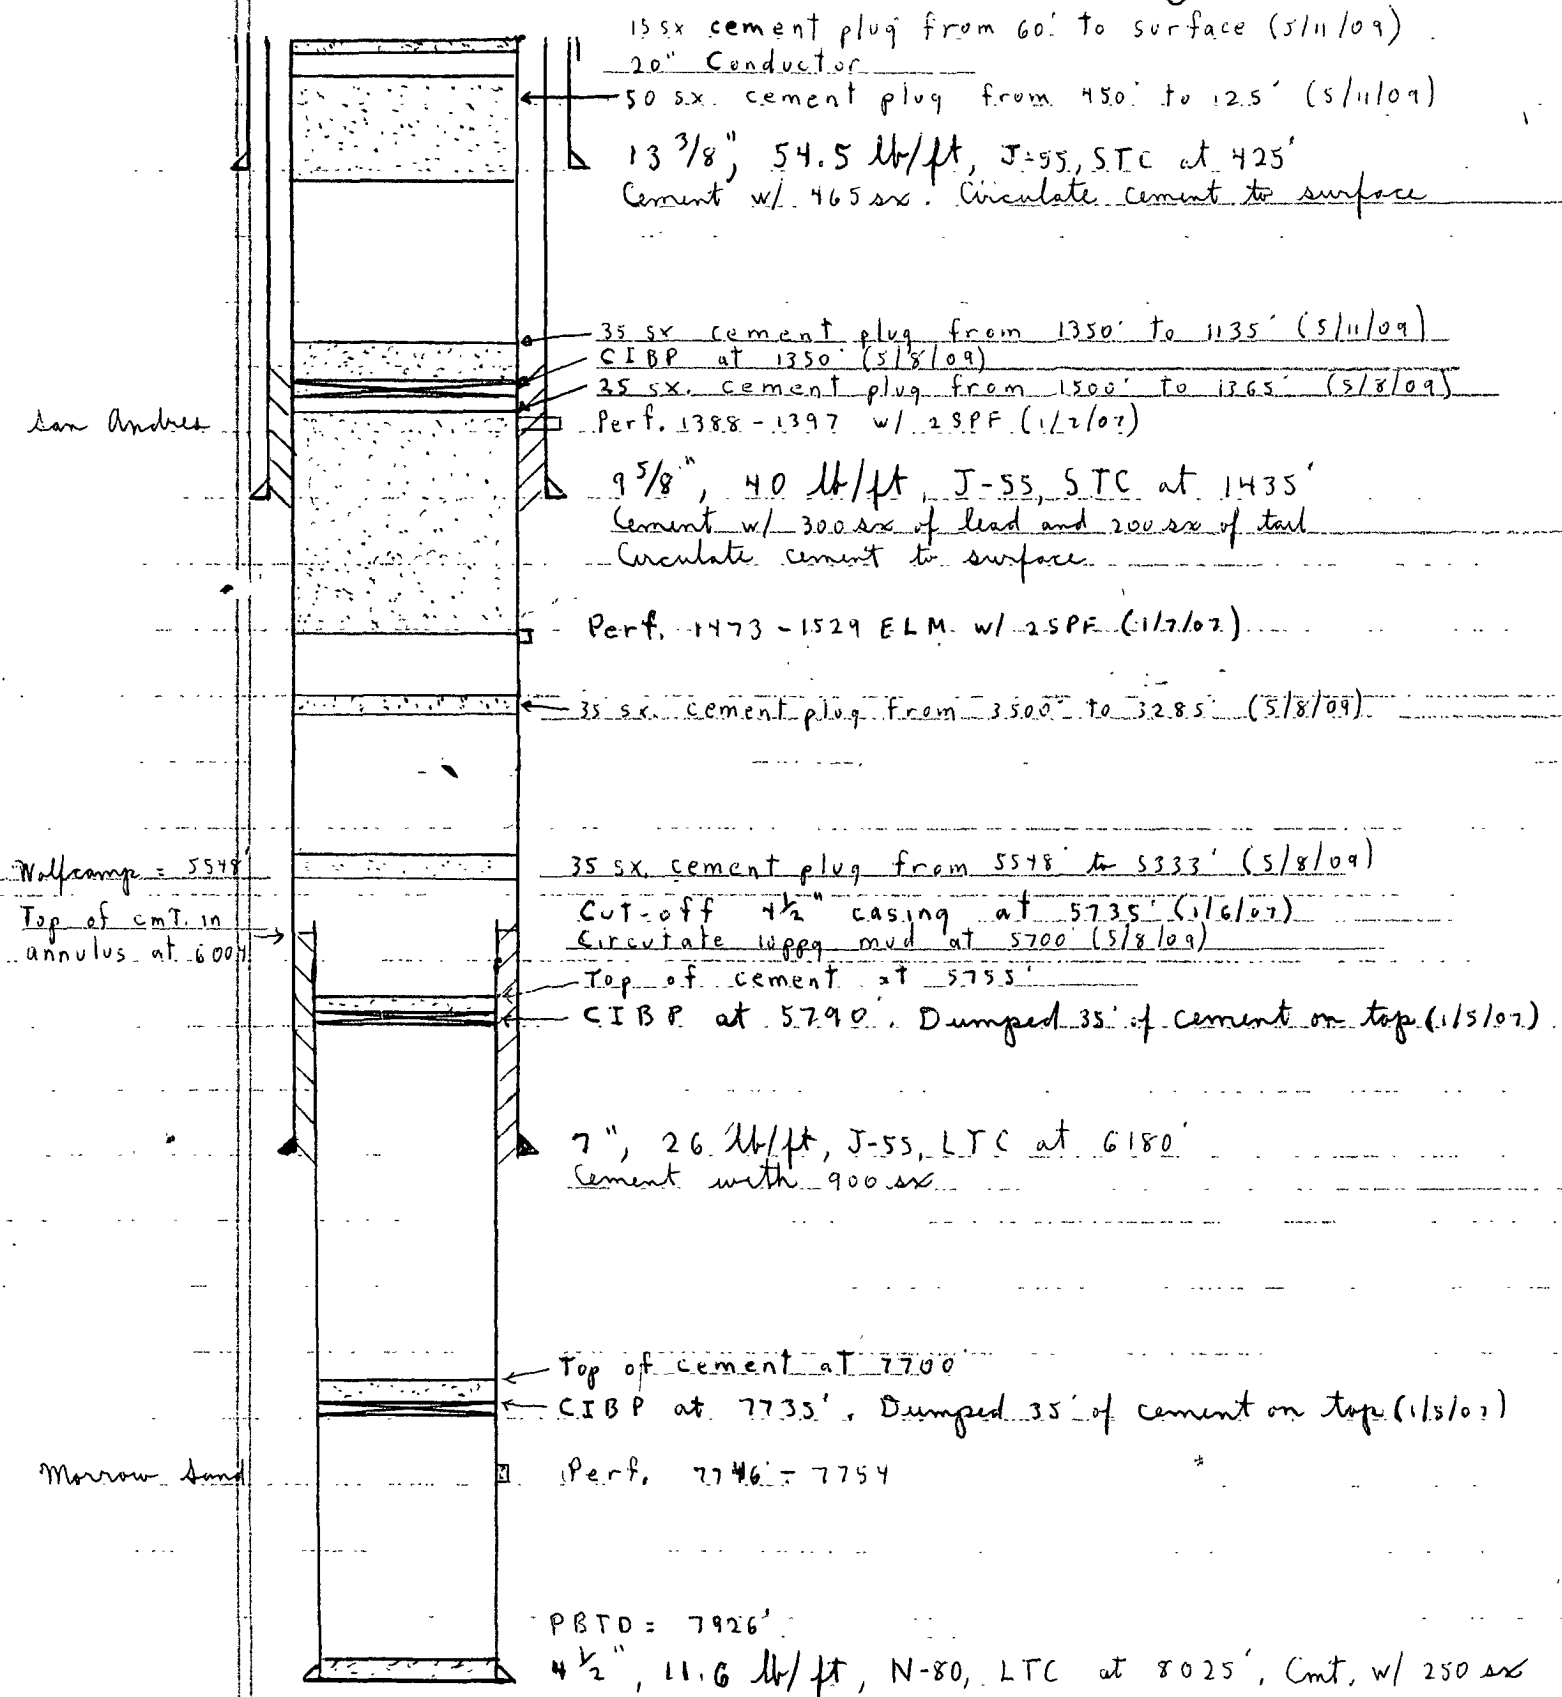 15 sx cement plug from 60' to surface (5/11/09)
20" Conductor
50 sx. cement plug from 450' to 125' (5/11/09)
13 3/8", 54.5 lb/ft, J-55, STC at 425'
Cement w/ 465 sx. Circulate cement to surface
35 sx cement plug from 1350' to 1135' (5/11/09)
CIBP at 1350' (5/8/09)
25 sx. cement plug from 1500' to 1365' (5/8/09)
San Andres
Perf. 1388-1397 w/ 2SPF (1/7/07)
9 5/8", 40 lb/ft, J-55, STC at 1435'
Cement w/ 300 sx of lead and 200 sx of tail
Circulate cement to surface
Perf. 1473-1529 ELM w/ 2SPF (1/7/07)
35 sx. cement plug from 3500' to 3285' (5/8/09)
Wolfcamp = 5548'
35 sx. cement plug from 5548' to 5333' (5/8/09)
Cut-off 4 1/2" casing at 5735' (1/6/07)
Top of cmt. in
annulus at
Circulate 10ppg mud at 5700' (5/8/09)
Top of cement at 5755'
CIBP at 5790'. Dumped 35' of cement on top (1/5/07)
7", 26 lb/ft, J-55, LTC at 6180'
Cement with 900 sx
Top of cement at 7700'
CIBP at 7735'. Dumped 35' of cement on top (1/5/07)
Morrow Sand
Perf. 7746'-7754
PBTD = 7926'
4 1/2", 11.6 lb/ft, N-80, LTC at 8025', Cmt. w/ 250 sx